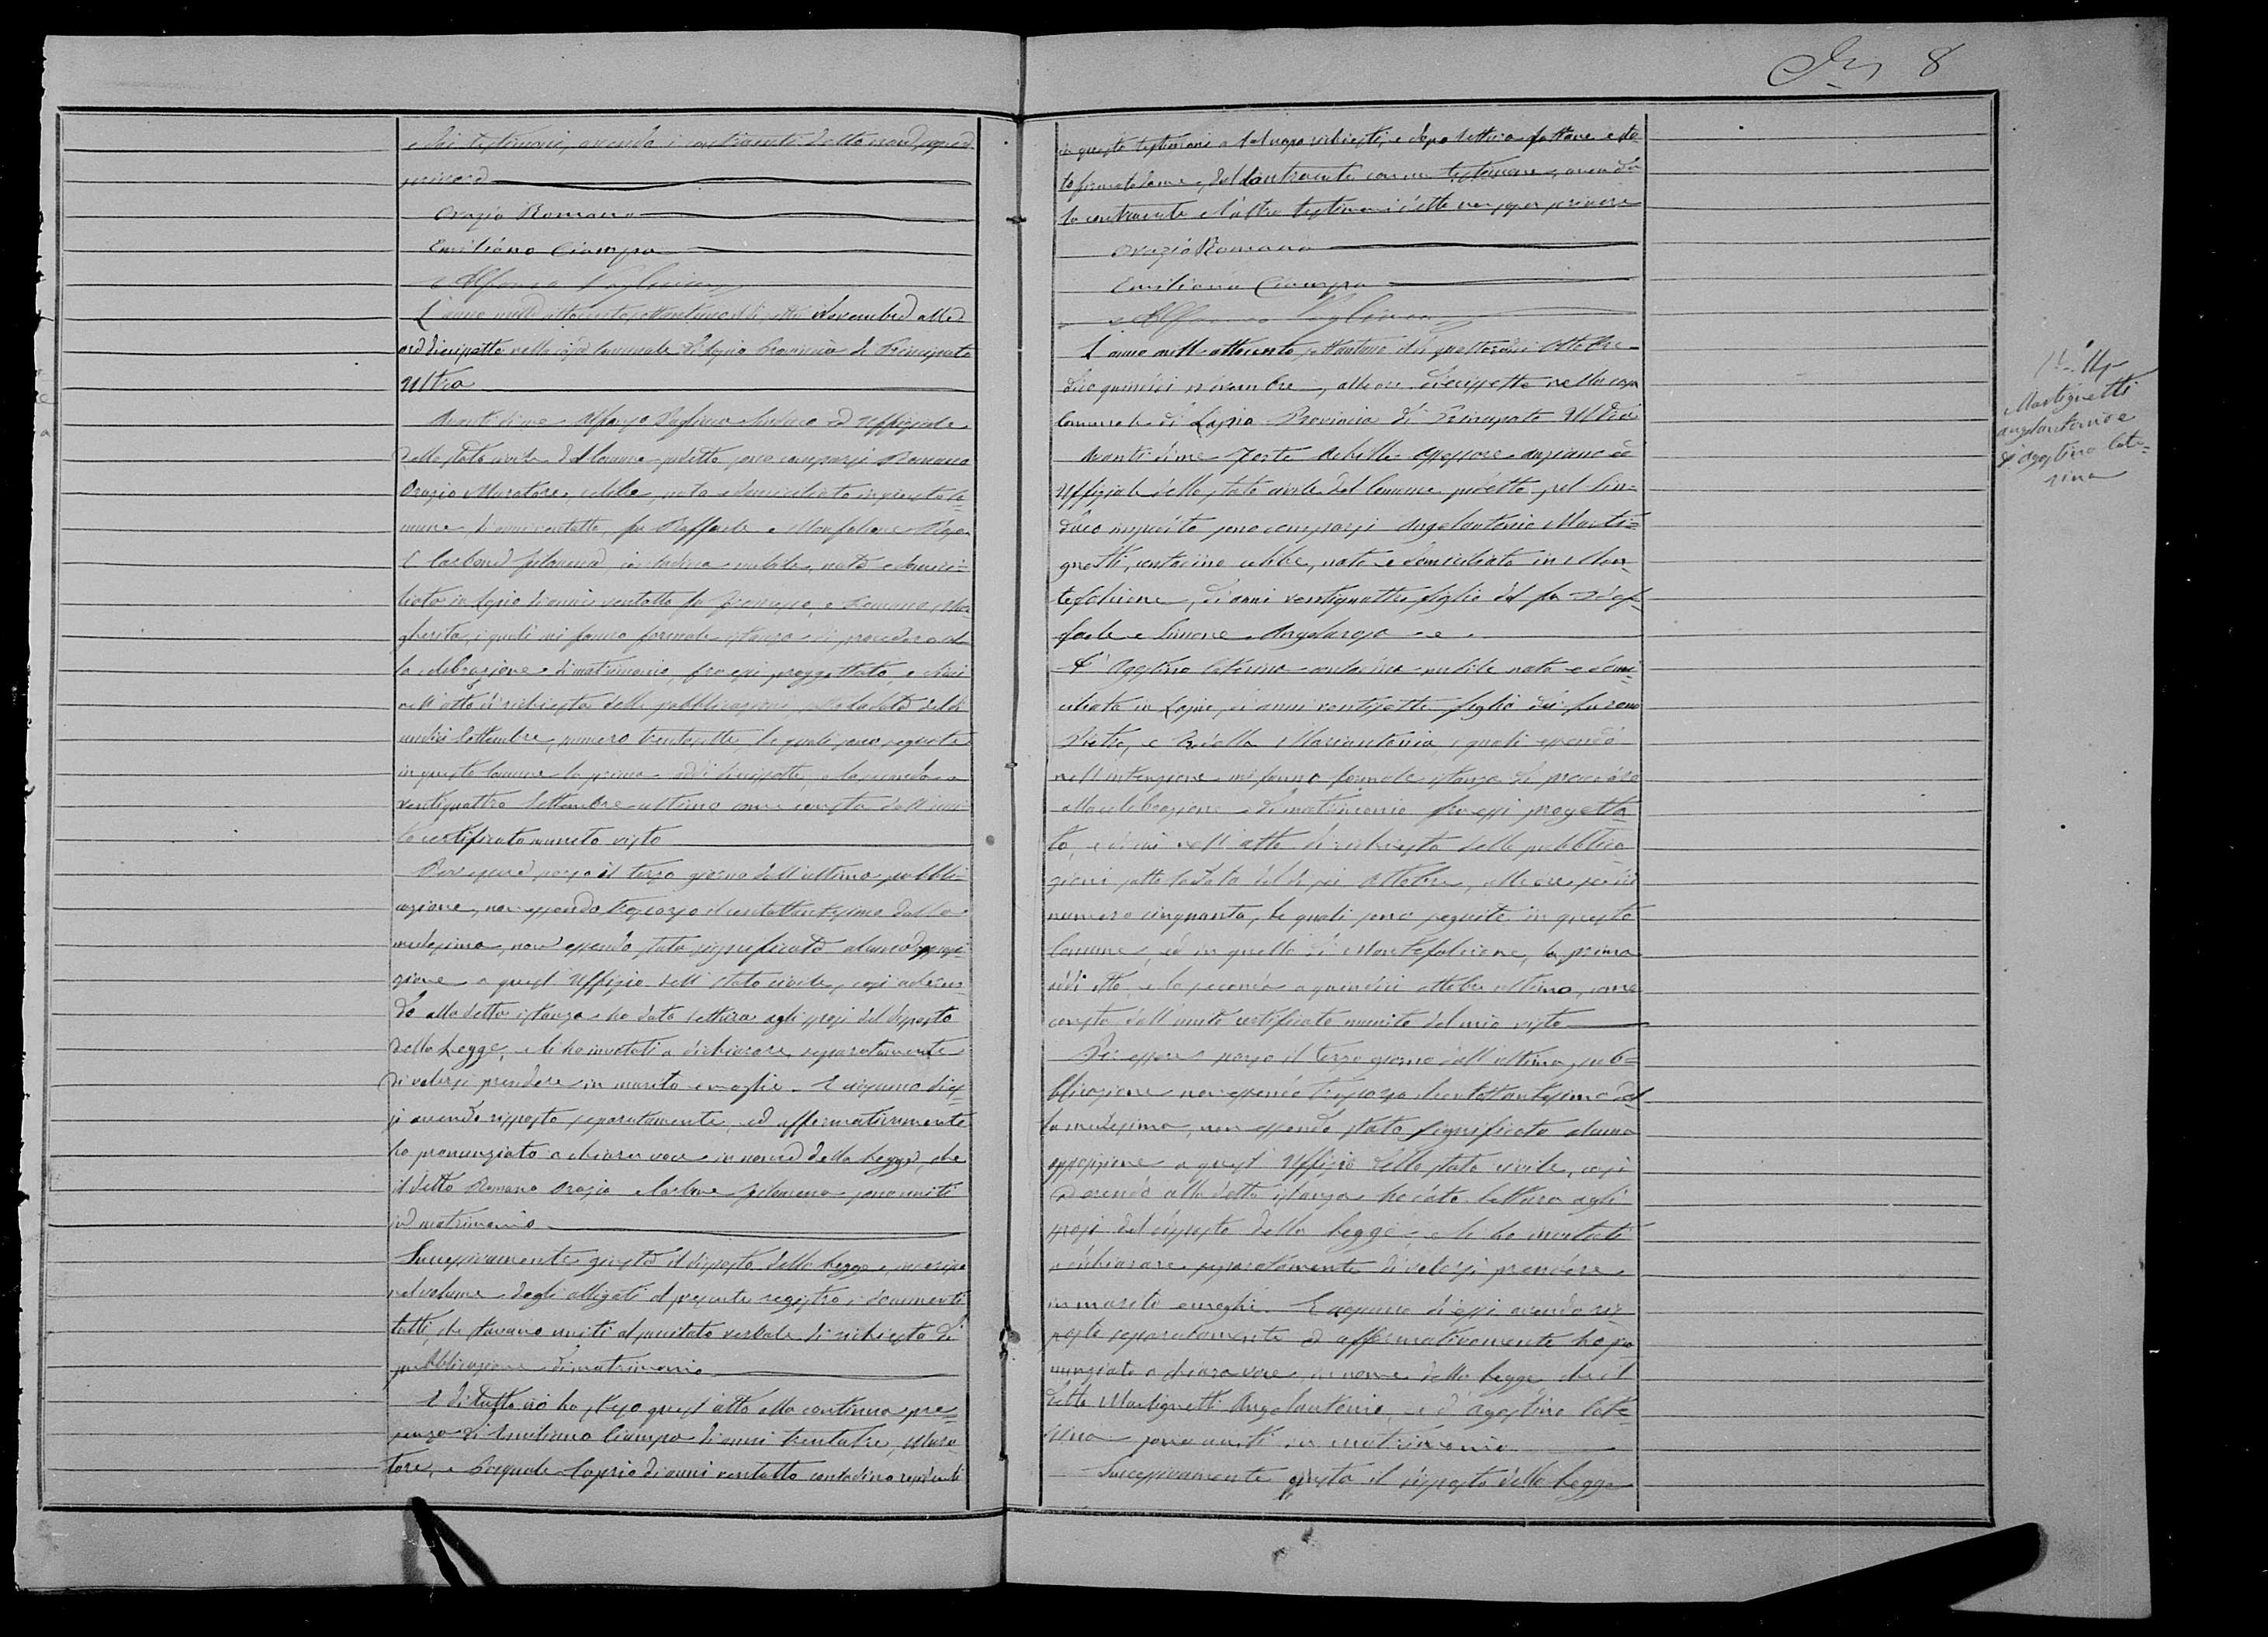 e dei testimoni, avendo i contraenti detto non saper
scrivere
Orazio Romano
Emiliano Ciampa
Alfonso
L'anno mille ottocento settantuno il dì otto Novembre alle
ore diecisette nella casa Comunale di Lapio Provincia di Principato
Ultra
Avanti di me Alfonso Sindaco ed Uffiziale
dello Stato Civile del Comune sudetto, sono comparsi Romano
Orazio Muratore, celibe, nato e domiciliato in questo Co=
mune, di anni ventotto, fu Raffaele e
E Carbone Filomena contadina nubile, nata e domici=
liata in Lapio di anni ventotto fu e Romano Mar
gherita, i quali mi fanno formale istanza di procedere al
la celebrazione di matrimonio, fra essi progettato, e di cui
nell'atto di richiesta delle pubblicazioni, sotto la data del dì
undici Settembre, numero trentasette, le quali sono seguite
in questo Comune la prima addì diecisette, e la seconda a
ventiquattro Settembre ultimo come consta dall'uni
to certificato munito visto
Per essere scorso il terzo giorno dell'ultima pubbli=
cazione, non essendo trascorso il centottantesimo dalla
medesima, non essendo stata significata alcuna opposi
zione a quest'Uffizio dello Stato civile, così aderen=
do alla detta istanza ho dato lettura agli sposi del disposto
della Legge, e li ho invitati a dichiarare separatamente
di volersi prendere in marito e moglie. E ciascuno di es=
si avendo risposto separatamente, ed affermativamente
ho pronunziato a chiara voce in nome della Legge, che
il detto Romano Orazio e Carbone Filomena sono uniti
in matrimonio
Successivamente giusta il disposto della Legge, inserisco
nel volume degli alligati al presente registro, i documenti
tutti, che stavano uniti al precitato verbale di richiesta di
pubblicazione di matrimonio
E di tutto ciò ho steso quest'atto alla continua pre=
senza di Emiliano Ciampa di anni trentatre, Mura
tore, e Pasquale Caprio di anni ventotto contadino residenti
8
in questo testimoni a tal uopo richiesti, e dopo lettura fattane è sta
to firmato da me, dal contraente con un testimone, avendo
la contraente e l'altro testimone detto non saper scrivere
Orazio Romano
Emiliano Ciampa
Alfonso
L'anno mille ottocento settantuno il dì quattordici Ottobre
dico quindici novembre, alle ore diecisette nella casa
Comunale di Lapio Provincia di Principato Ultra
Avanti di me Forte Achille Assessore anziano ed
Uffiziale dello Stato civile del Comune sudetto, pel Sin=
daco impedito sono comparsi Angelantonio Marti=
gnetti, contadino celibe, nato e domiciliato in Mon=
tefalcione, di anni ventiquattro figlio del fu Raf=
faele e Simone Angelarosa
D'Agostino Caterina contadina nubile nata e domi
ciliata in Lapio, di anni ventisette figlia dei furono
Pietro, e Mariantonia, i quali essendo
nell'intenzione mi fanno formale istanza di procedere
alla celebrazione di matrimonio fra essi progetta=
to, e di cui nell'atto di richiesta delle pubblica=
zioni sotto la data del dì sei Ottobre, alle ore
numero cinquanta, le quali sono seguite in questo
Comune, ed in quello di Montefalcione, la prima
addì otto, e la seconda a quindici ottobre ultimo, come
consta dall'unito certificato munito del mio visto
Per essere scorso il terzo giorno dall'ultima pub=
blicazione non essendo trascorso il centottantesimo dal=
la medesima, non essendo stata significata alcuna
opposizione a quest'Uffizio dello stato civile, così
aderendo alla detta istanza ho dato lettura agli
sposi del disposto della Legge e li ho invitati
a dichiarare separatamente di volersi prendere
in marito e moglie. E ciascuno di essi avendo ris
posto separatamente ed affermativamente ho pro
nunziato a chiara voce, in nome della Legge che il
detto Martignetti Angelantonio, e d'Agostino Cate=
rina sono uniti in matrimonio
Successivamente giusta il disposto della Legge
Martignetti
Angelantonio e
d'Agostino Cate=
rina